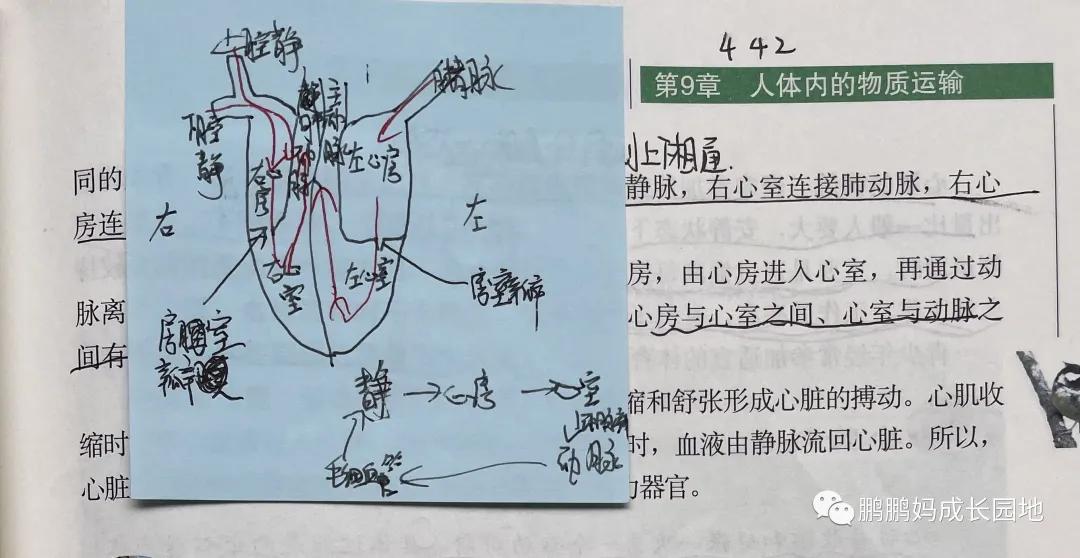 442
第9章 人体内的物质运输
上腔静
肺静脉
下腔静
主动脉
肺动脉
左心房
右心房
上下相通.
同的
静脉，右心室连接肺动脉，右心
房连
右
左
右心室
左心室
房室瓣
房，由心房进入心室，再通过动
脉离
心房与心室之间、心室与动脉之
间有
房室瓣膜
静→心房→心室
缩和舒张形成心脏的搏动。心肌收
缩时
时，血液由静脉流回心脏。所以，
动脉
毛细血管
心脏
器官。
鹏鹏妈成长园地